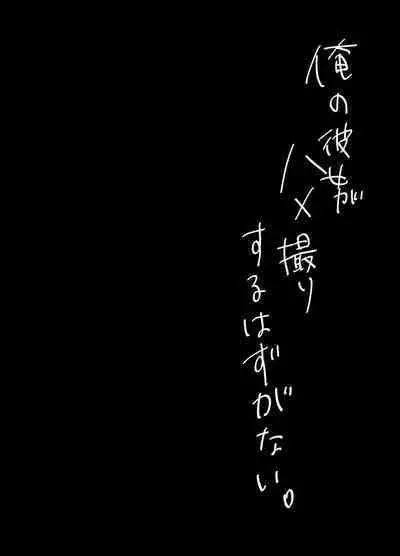 俺の彼女が
ハメ撮り
するはずがない。